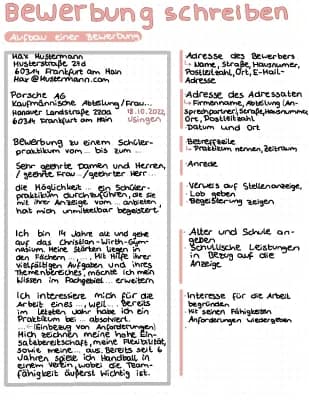 Bewerbung schreiben
Aufbau einer Bewerbung
Max Mustermann
Musterstraße 21d
60314 Frankfurt am Main
Max@Mustermann.com
Porsche AG
Kaufmännische Abteilung/Frau...
Hanauer Landstraße 220a
60314 Frankfurt am Main
18.10.2022,
Usingen
Bewerbung zu einem Schüler-
praktikum vom ... bis zum ...
Sehr geehrte Damen und Herren,
/geehrte Frau .../geehrter Herr...
die Möglichkeit ... ein Schüler-
praktikum durchzuführen, die sie
mit ihrer Anzeige vom ... anbieten,
hat mich unmittelbar begeistert!
Ich bin 14 Jahre alt und gehe
auf das Christian-Wirth-Gym-
nasium. Meine Stärken liegen in
den Fächern ..., ..., .... Mit Hilfe ihrer
vielfältigen Aufgaben und ihres
Themenbereiches, möchte ich mein
Wissen im Fachgebiet ... erweitern.
Ich interessiere mich für die
Arbeit eines ..., weil... Bereits
im letzten Jahr habe ich ein
Praktikum bei ... absolviert.
... (Einbezug von Anforderungen)
Mich zeichnen meine hohe Ein-
satzbereitschaft, meine Flexibilität,
sowie meine ... aus. Bereits seit 6
Jahren spiele ich Handball in
einem Verein, wobei die Team-
fähigkeit äußerst wichtig ist.
Adresse des Bewerbers
Name, Straße, Hausnummer,
Postleitzahl, Ort, E-Mail-
Adresse
Adresse des Adressaten
Firmenname, Abteilung (An-
sprechpartner), Straße, Hausnummer,
Ort, Postleitzahl
Datum und Ort
Betreffzeile
Praktikum nennen, Zeitraum
Anrede
Verweis auf Stellenanzeige,
Lob geben
Begeisterung zeigen
Alter und Schule an-
geben
Schulische Leistungen
in Bezug auf die
Anzeige
Interesse für die Arbeit
begründen
Mit seinen Fähigkeiten
Anforderungen wiedergeben